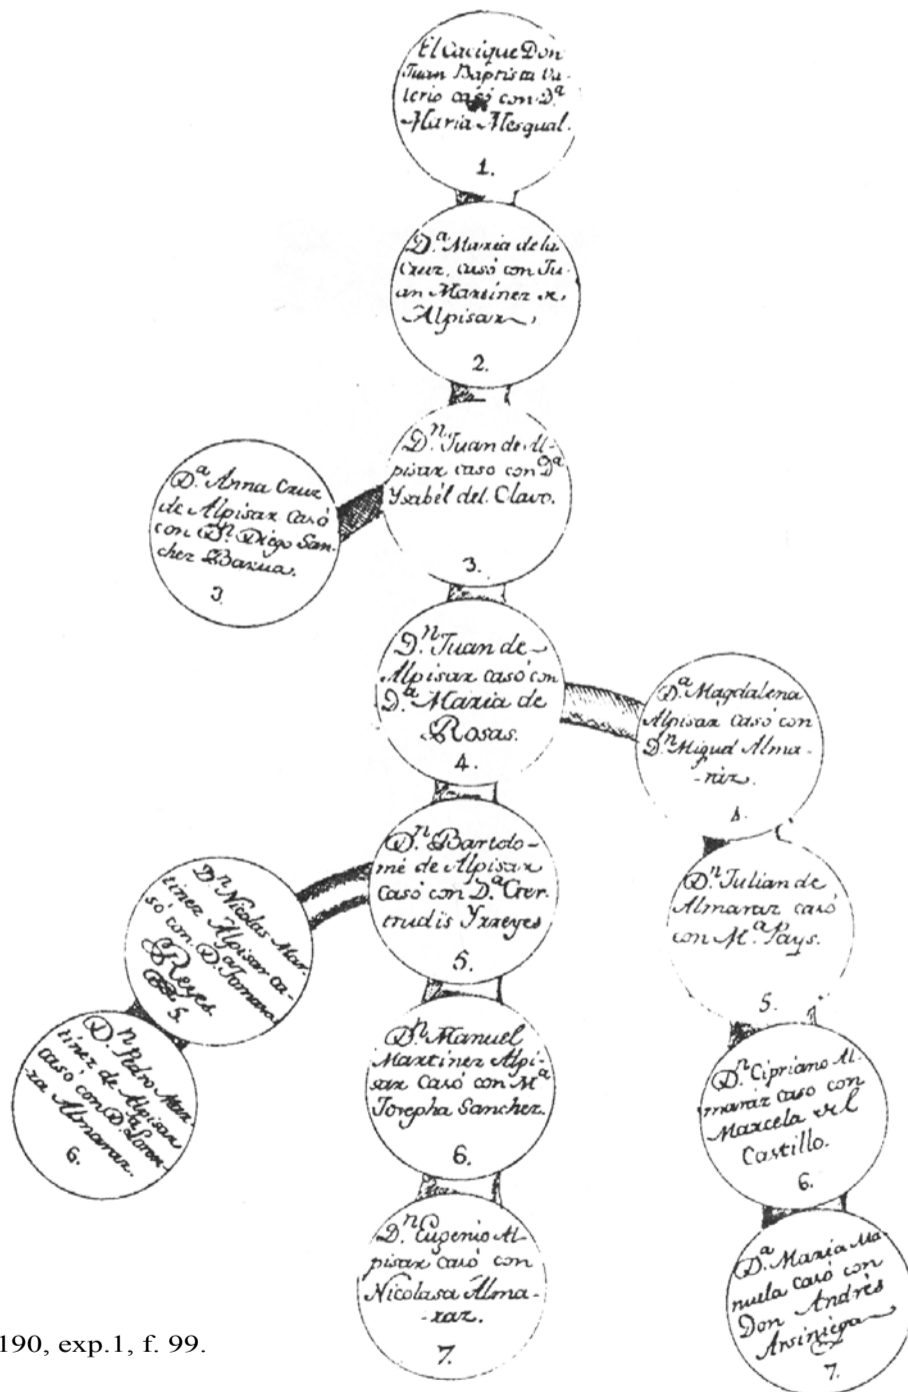 El Cacique Don
Juan Baptista Va-
lerio casó con D.ª
Maria Mesqual.
1.
D.ª Maria de la
Cruz, casó con Ju-
an Martinez de
Alpisar
2.
Dⁿ. Juan de Al-
pisar caso con Dª
Ysabél del Clavo.
3.
D.ª Anna Cruz
de Alpisar Casó
con Dⁿ. Diego San-
chez Barua.
3
Dⁿ. Juan de
Alpisar casó con
D.ª Maria de
Rosas.
4.
D.ª Magdalena
Alpisar Casó con
Dⁿ. Miguel Alma-
-riz.
4.
Dⁿ. Bartolo-
mé de Alpisar
Casó con D.ª Ger
trudis Yrreyes
5.
Dⁿ Nicolas Mar-
tinez Alpisar ca-
só con D.ª
Reyes.
5.
Dⁿ. Julian de
Almaraz casó
con M.ª Pays.
5.
Dⁿ. Pedro Mar
tinez de Alpisar
casó con D.ª Loren-
za Almaraz.
6.
Dⁿ. Manuel
Martinez Alpi-
sar Casó con Mª
Josepha Sanchez.
6.
Dⁿ Cipriano Al-
maraz caso con
Marcela del
Castillo.
6.
Dⁿ. Eugenio Al-
pisar casó con
Nicolasa Alma-
-raz.
7.
D.ª Maria Ma-
nuela casó con
Don Andrés
Arsiniega
7.
190, exp.1, f. 99.